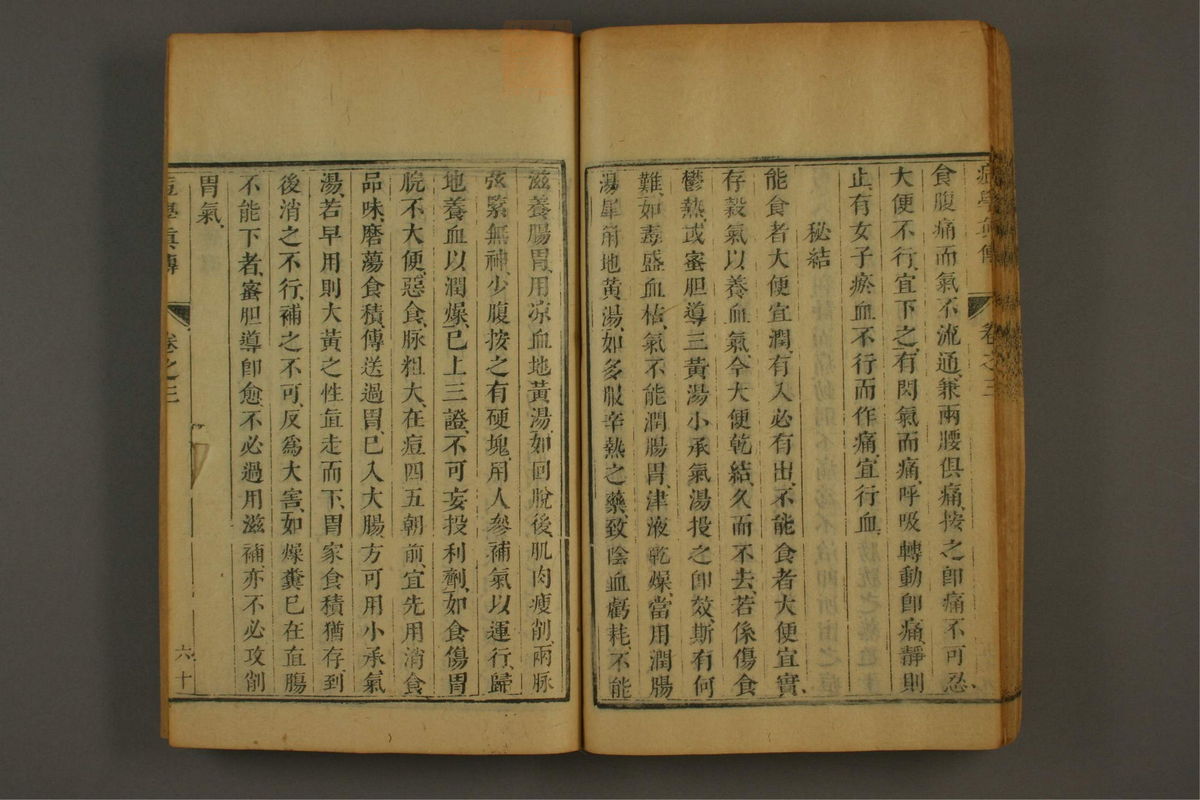 痘學真傳 卷之三
食腹痛而氣不流通、兼兩腰俱痛、按之卽痛不可忍
大便不行、宜下之、有閃氣而痛、呼吸轉動卽痛、靜則
止、有女子瘀血不行而作痛、宜行血
秘結
能食者大便宜潤、有入必有出、不能食者大便宜實、
存穀氣以養血氣、今大便乾結、久而不去、若係傷食
鬱熱、或蜜胆導三黃湯小承氣湯投之卽效、斯有何
難、如毒盛血枯、氣不能潤腸胃、津液乾燥、當用潤腸
湯犀角地黃湯、如多服辛熱之藥、致陰血虧耗、不能
滋養腸胃、用凉血地黃湯、如回脫後、肌肉瘦削、兩脉
弦緊無神、少腹按之有硬塊、用人參補氣以運行、歸
地養血以潤燥、已上三證、不可妄投利劑、如食傷胃
脘不大便、惡食、脉粗大、在痘四五朝前、宜先用消食
品味、磨蕩食積、傳送過胃、已入大腸、方可用小承氣
湯、若早用則大黃之性直走而下、胃家食積猶存、到
後消之不行、補之不可、反爲大害、如燥糞已在直腸
不能下者、蜜胆導卽愈、不必過用滋補、亦不必攻削
胃氣、
痘學真傳 卷之三 六十